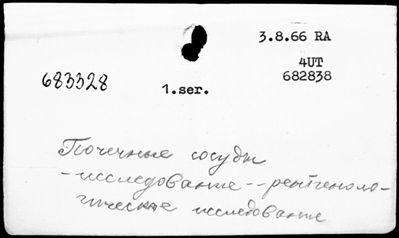 3.8.66 RA
4UT
683328
682838
1.ser.
Почечные сосуды
-исследование--рентгеноло-
гическое исследование